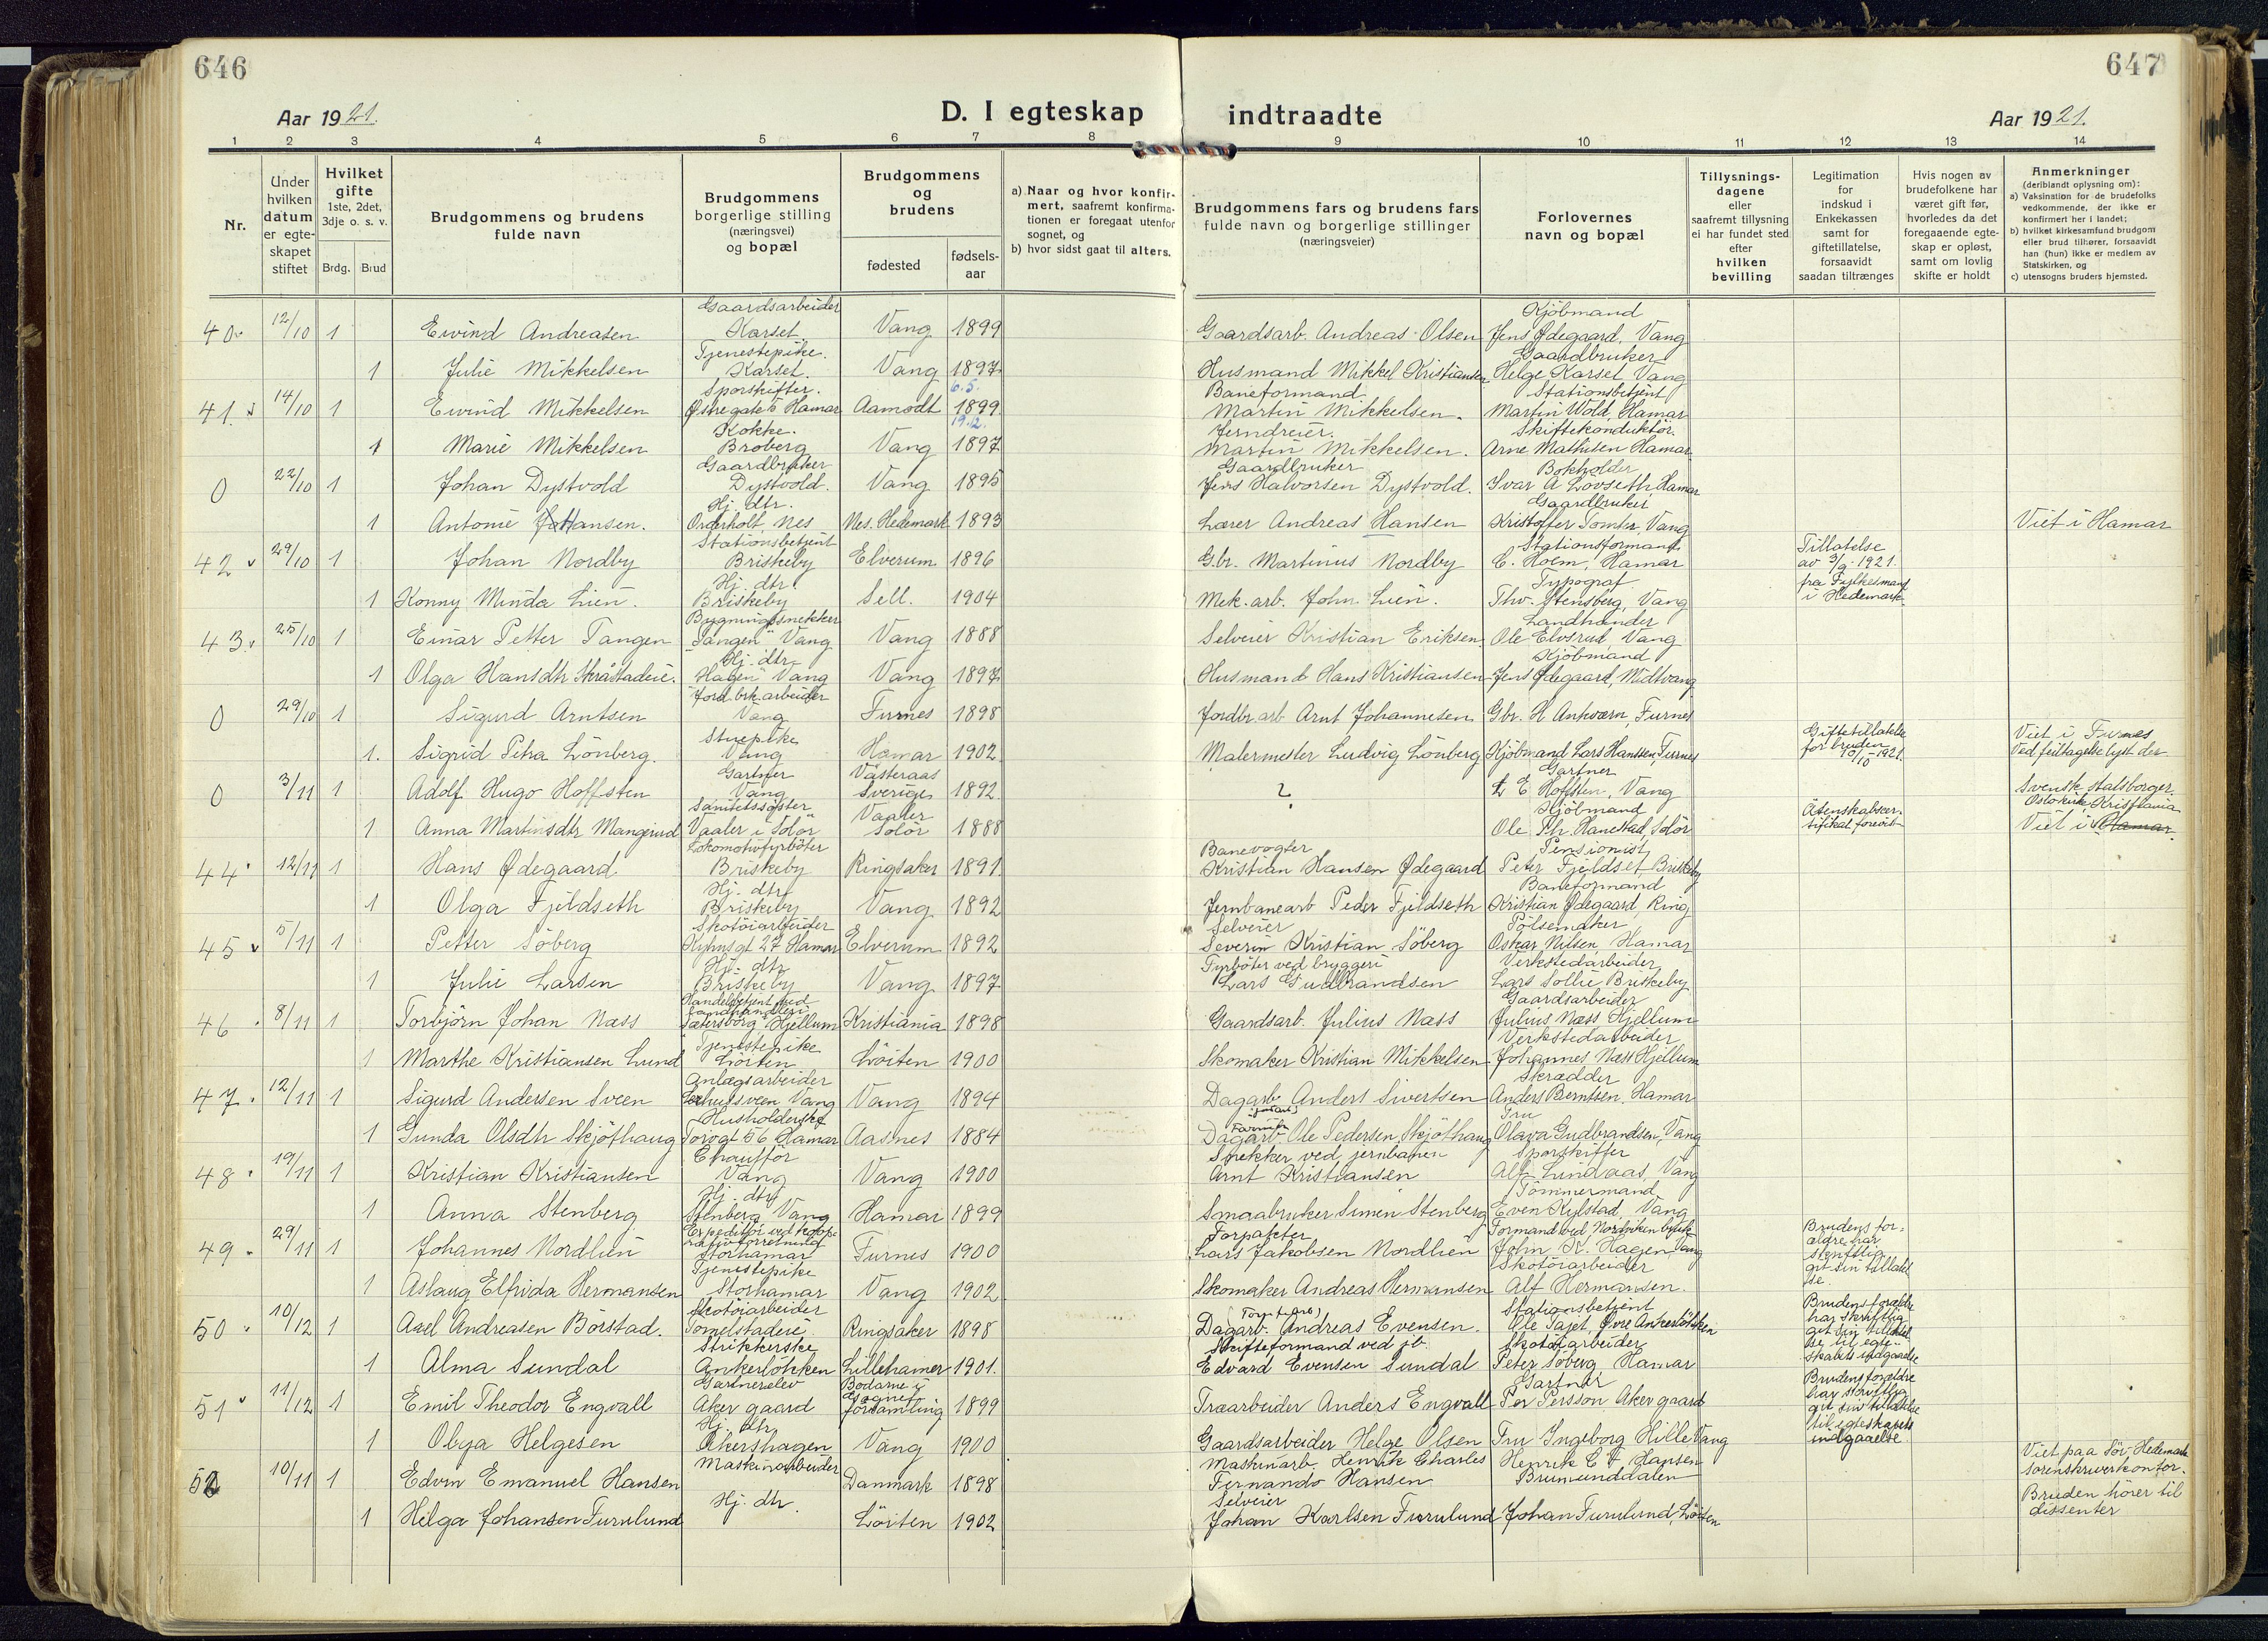 646
647
Aar 1921.
D. I egteskap indtraadte
Aar 1921.
1 2 3 4 5 6 7 8 9 10 11 12 13 14
Nr.
Under hvilken datum er egteskapet stiftet
Hvilket gifte 1ste, 2det, 3dje o. s. v.
Brdg. Brud
Brudgommens og brudens fulde navn
Brudgommens borgerlige stilling (næringsvei) og bopæl
Brudgommens og brudens
fødested
fødsels-aar
a) Naar og hvor konfirmert, saafremt konfirmationen er foregaat utenfor sognet, og
b) hvor sidst gaat til alters.
Brudgommens fars og brudens fars fulde navn og borgerlige stillinger (næringsveier)
Forlovernes navn og bopæl
Tillysningsdagene eller saafremt tillysning ei har fundet sted efter hvilken bevilling
Legitimation for indskud i Enkekassen samt for giftetillatelse, forsaavidt saadan tiltrænges
Hvis nogen av brudefolkene har været gift før, hvorledes da det foregaaende egteskap er opløst, samt om lovlig skifte er holdt
Anmerkninger (deriblandt oplysning om):
a) Vaksination for de brudefolks vedkommende, der ikke er konfirmert her i landet;
b) hvilket kirkesamfund brudgom eller brud tilhører, forsaavidt han (hun) ikke er medlem av Statskirken, og
c) utensogns bruders hjemsted.
40. 12/10 1 Eivind Andreasen Gaardsarbeider Karset Vang 1899 Gaardsarb. Andreas Olsen Kjöbmand Jens Ødegaard, Vang
1 Julie Mikkelsen Tjenestepike. Karset. Vang 1897 Husmand Mikkel Kristiansen Gaardbruker Helge Karset Vang
41. 14/10 1 Eivind Mikkelsen Sporskifter. Østregate 6 Hamar Aamodt 6.5. 1899 Baneformand Martin Mikkelsen. Stationsbetjent Martin Wold, Hamar
1 Marie Mikkelsen Kokke. Broberg Vang 19.12. 1897 Jerndreier. Martin Mikkelsen. Skiftekonduktör. Arne Mathisen Hamar
0 22/10 1 Johan Dystvold Gaardbruker Dystvold. Vang 1895 Gaardbruker Jens Halvorsen Dystvold. Bokholder Ivar A Lovseth, Hamar
1 Antonie Hansen. Hj. dtr. Nes Nes. Hedemark 1893 Lærer Andreas Hansen Gaardbruker Kristoffer Tomter, Vang Viet i Hamar
42 29/10 1 Johan Nordby Stationsbetjent Briskeby Elverum 1896 Gbr. Martinus Nordby Stationsformand C. Holm, Hamar Tillatelse av 3/9. 1921. fra Fylkesmand i Hedemark
1 Konny Minda Lien. Hj. dtr. Briskeby Sell. 1904 Mek. arb. John Lien. Typograf Thv. Stensberg, Vang
43. 25/10 1 Einar Petter Tangen Bygningssnekker "Tangen" Vang Vang 1888 Selveier Kristian Eriksen. Landhandler Ole Elvsrud, Vang
1 Olga Hansdtr Skråstadeie. Hj. dtr. Hagen Vang Vang 1897 Husmand Hans Kristiansen Kjöbmand Jens Ødegaard, Midtvang
0 29/10 1 Sigurd Arntsen Jord.brk. arbeider Vang Furnes 1898 Jordbr. arb Arnt Johannesen Gbr. H Ankværn, Furnes
1. Sigrid Petra Lönberg. Stuepike Vang Hamar 1902 Malermester Ludvig Lönberg Kjöbmand Lars Hanssen, Furnes Giftetillatelse for bruden 10/10-1921. Viet i Furnes Ved feiltagelse lyst der
0 3/11 1 Adolf Hugo Hoffsten Gartner Vang Västeraas Sverige 1892 ? Gartner E Hoffsten, Vang Svensk statsborger.
1 Anna Martinsdtr Mangerud Sanitetssöster Vaaler i Solör Vaaler Solör 1888 Kjöbmand Ole Th. Hanestad, Solör Oslo kirke, Kristiania Viet i Hamar.
44 12/11 1 Hans Ødegaard Lokomotivfyrböter Briskeby Ringsaker 1891 Banevogter Kristian Hansen Ødegaard Pensionist Peter Fjeldset, Briskeby
1 Olga Fjeldseth Hj. dtr. Briskeby Vang 1892 Jernbanearb Peder Fjeldseth Baneformand Kristian Ødegaard, Ring
45 5/11 1 Petter Söberg Skotöiarbeider Kyhnsgt 27 Hamar Elverum 1892 Selveier Severin Kristian Söberg Pölsemaker Oskar Nilsen, Hamar
1 Julie Larsen Hj. dtr Briskeby Vang 1897 Fyrböter ved bryggeri Lars Gudbrandsen Verkstedarbeider Lars Sollie Briskeby
46 8/11 1 Torbjörn Johan Næss Handelsbetjent ved Landhandleri Sætersborg, Hjellum Kristiania 1898 Gaardsarb. Julius Næss Gaardsarbeider Julius Næss Hjellum
1 Marthe Kristiansen Lund Tjenestepike Löiten Löiten 1900 Skomaker Kristian Mikkelsen Verkstedarbeider Johannes Næss Hjellum
47. 12/11 1 Sigurd Andersen Sveen Anlægsarbeider Vang Vang 1894 Dagarb. Anders Sivertsen Skrædder Anders Berntsen, Hamar
1 Gunda Olsdtr Skjöthaug Husholderske Torvgt 56 Hamar Aasnes 1884 Dagarb. Ole Pedersen Skjöthaug Fru Olava Gudbrandsen, Vang
48. 19/11 1 Kristian Kristiansen Chaufför Vang Vang 1900 Snekker ved jernbanen Arnt Kristiansen Sporskifter Alf Lindaas, Vang
1 Anna Stenberg Hj. dtr Stenberg Vang Hamar 1899 Smaabruker Simen Stenberg Tömmermand Even Kylstad, Vang
49. 29/11 1 Johannes Nordlien Expeditör ved Storhamar Furnes 1900 Forpakter Lars Jakobsen Nordlien Formand ved Nordviken John K. Hagen, Vang Brudens forældre har skriftlig git sin tillatelse.
1 Aslaug Elfrida Hermansen Tjenestepike Storhamar Vang 1902 Skomaker Andreas Hermansen Skotöiarbeider Alf Hermansen.
50. 10/12 1 Axel Andreasen Börstad. Skotöiarbeider Tomelstadeie Ringsaker 1898 Dagarb. Andreas Evensen. Stationsbetjent Ole Sajet, Øvre Ankerlökken Brudens forældre har skriftlig git sin tillatelse til egteskapets indgaaelse
1 Alma Sundal Strikkerske Ankerlökken Lillehamer 1901. Skifteformand ved jb. Edvard Evensen Sundal Skotöiarbeider Peter Söberg, Hamar
51 11/12 1 Emil Theodor Engvall Gartnerelev Aker gaard Bodarne i församling 1899 Træarbeider Anders Engvall Gartner Per Persson Aker gaard Brudens forældre har skriftlig git sin tillatelse til egteskapets indgaaelse.
1 Olga Helgesen Hj. dtr. Akershagen Vang 1900 Gaardsarbeider Helge Olsen Fru Ingeborg Hille Vang
52 10/11 1 Edvin Emanuel Hansen Maskinarbeider Danmark 1898 Maskinarb. Henrik Charles Fernando Hansen Henrik C F Hansen Brumunddalen Viet paa Sör-Hedemark Sorenskriverkontor.
1 Helga Johansen Furulund Hj. dtr. Löiten 1902 Selveier Johan Karlsen Furulund Johan Furulund, Löiten Bruden hörer til dissenter